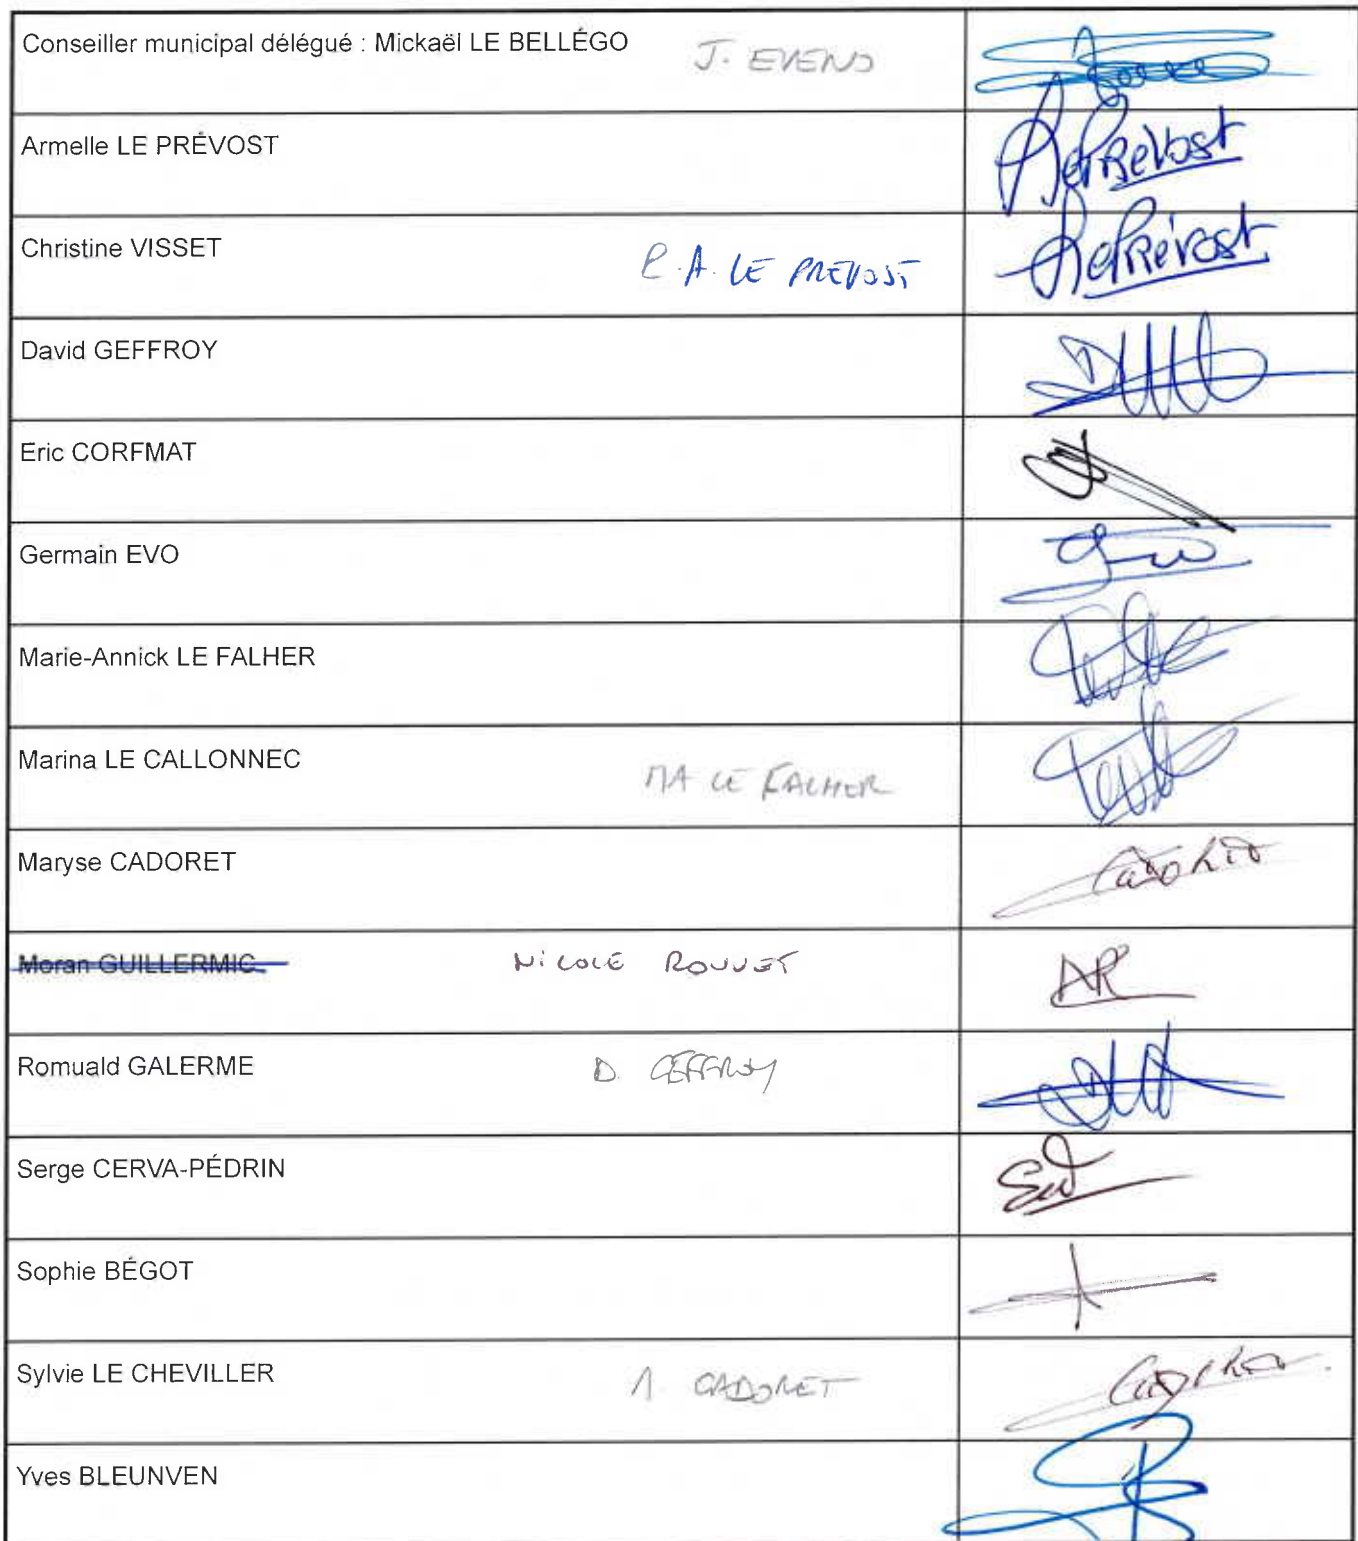 Conseiller municipal délégué : Mickaël LE BELLÉGO J. EVENO
Armelle LE PRÉVOST LePrévost
Christine VISSET P. A. LE PREVOST LePrévost
David GEFFROY
Eric CORFMAT
Germain EVO
Marie-Annick LE FALHER
Marina LE CALLONNEC MA LE FALHER
Maryse CADORET
Moran GUILLERMIC NICOLE ROUVET
Romuald GALERME D. GEFFROY
Serge CERVA-PÉDRIN
Sophie BÉGOT
Sylvie LE CHEVILLER M. CADORET
Yves BLEUNVEN